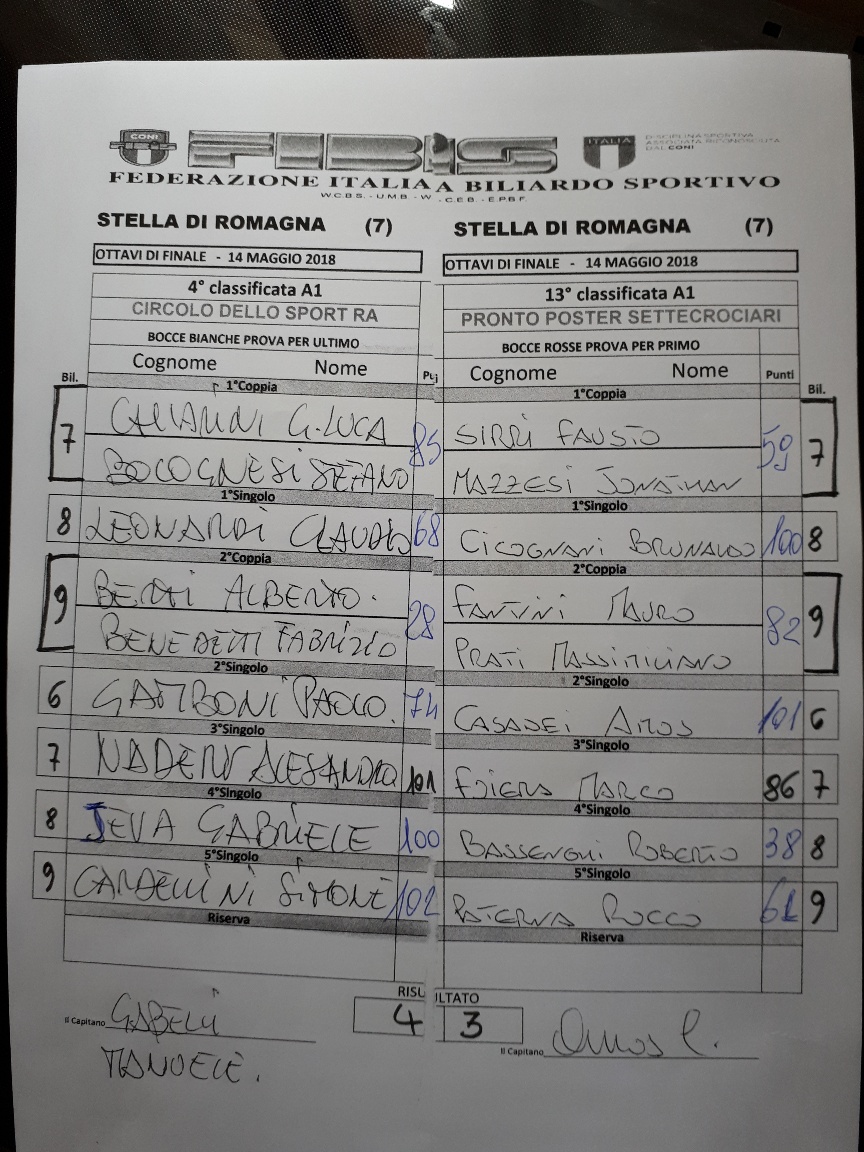 CONI
FIBIS
ITALIA
DISCIPLINA SPORTIVA
ASSOCIATA RICONOSCIUTA
DAL CONI
FEDERAZIONE ITALIA A BILIARDO SPORTIVO
W.C.B.S. - U.M.B. - W - C.E.B. - E.P.B.F.
STELLA DI ROMAGNA (7)
OTTAVI DI FINALE - 14 MAGGIO 2018
4° classificata A1
CIRCOLO DELLO SPORT RA
BOCCE BIANCHE PROVA PER ULTIMO
Bil. Cognome Nome
1°Coppia
7 G.LUCA 85
STEFANO
1°Singolo
8 LEONARDI CLAUDIO 68
2°Coppia
9 BERTI ALBERTO. 28
BENEDETTI FABRIZIO
2°Singolo
6 GAMBONI PAOLO. 74
3°Singolo
7 ALESSANDRO 101
4°Singolo
8 GABRIELE 100
5°Singolo
9 CARDELLINI SIMONE 102
Riserva
RISU
4
Il Capitano GABELLI
MANUELE.
STELLA DI ROMAGNA (7)
OTTAVI DI FINALE - 14 MAGGIO 2018
13° classificata A1
PRONTO POSTER SETTECROCIARI
BOCCE ROSSE PROVA PER PRIMO
Cognome Nome Punti Bil.
1°Coppia
SIRRI FAUSTO 59 7
MAZZESI JONATHAN
1°Singolo
CICOGNANI BRUNALDO 100 8
2°Coppia
FANTINI MAURO 82 9
PRATI MASSIMILIANO
2°Singolo
CASADEI AMOS 101 6
3°Singolo
MARCO 86 7
4°Singolo
BASSENGHI ROBERTO 38 8
5°Singolo
PATERNA ROCCO 61 9
Riserva
LTATO
3
Il Capitano